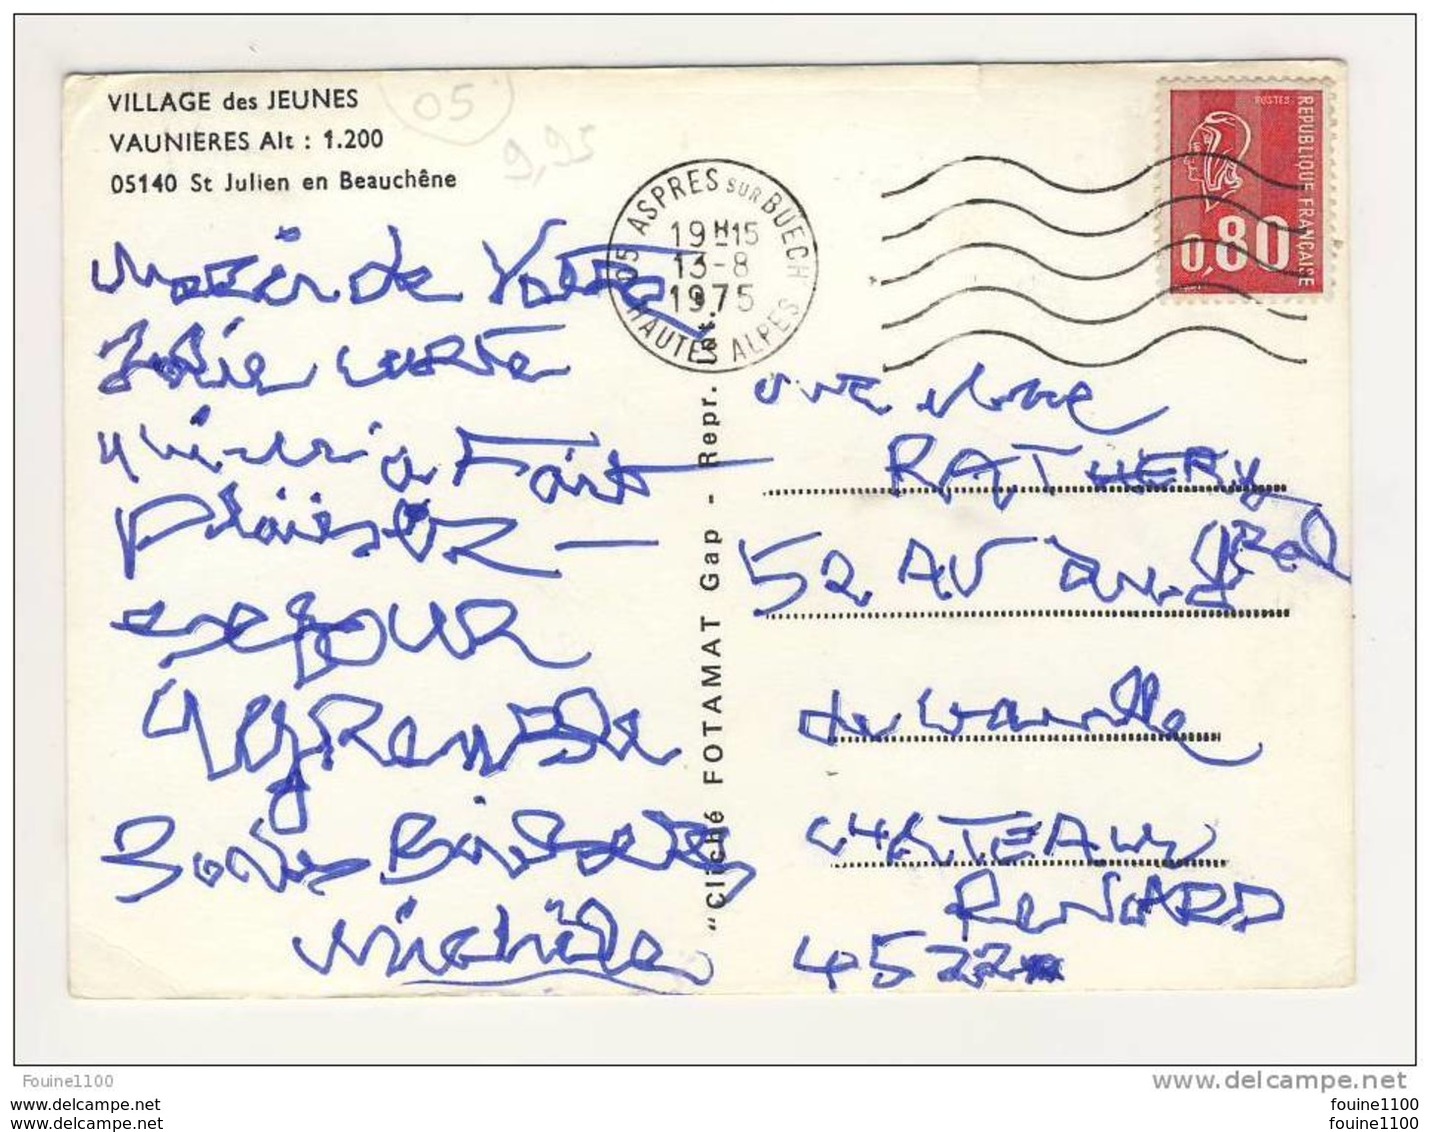 VILLAGE des JEUNES
VAUNIERES Alt : 1.200
05140 St Julien en Beauchêne
05
9,95
05 ASPRES SUR BUECH
19H15
13-8
1975
HAUTES ALPES
POSTES
REPUBLIQUE FRANÇAISE
0,80
de
Jolie carte
a Fait
plaisir
Bons Baisers
Michèle
"Cliché FOTAMAT Gap - Repr. Int.
RATHERY
52 AV du gral
CHATEAU
RENARD
4522
Fouine1100
www.delcampe.net
fouine1100
www.delcampe.net
fouine1100
www.delcampe.net